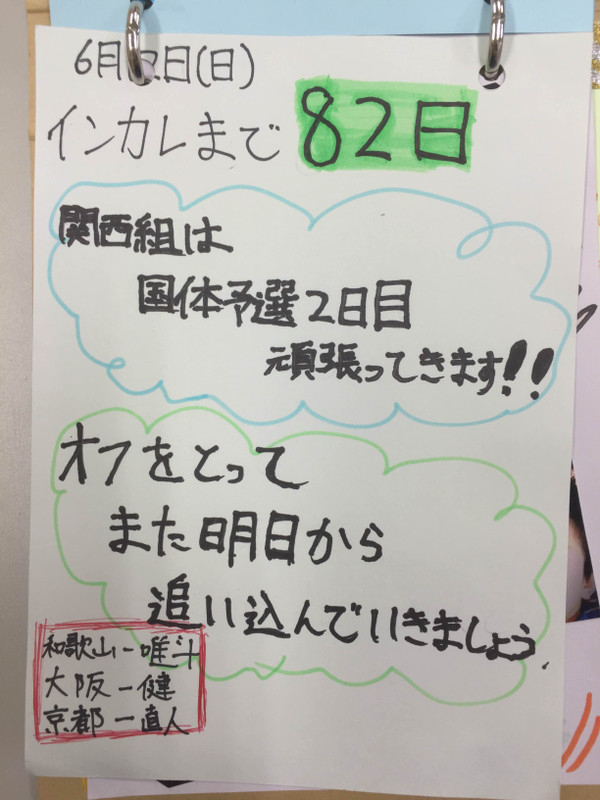 6月12日(日)
インカレまで 82日
関西組は
国体予選2日目
頑張ってきます!!
オフをとって
また明日から
追い込んでいきましょう
和歌山-唯斗
大阪-健
京都-直人